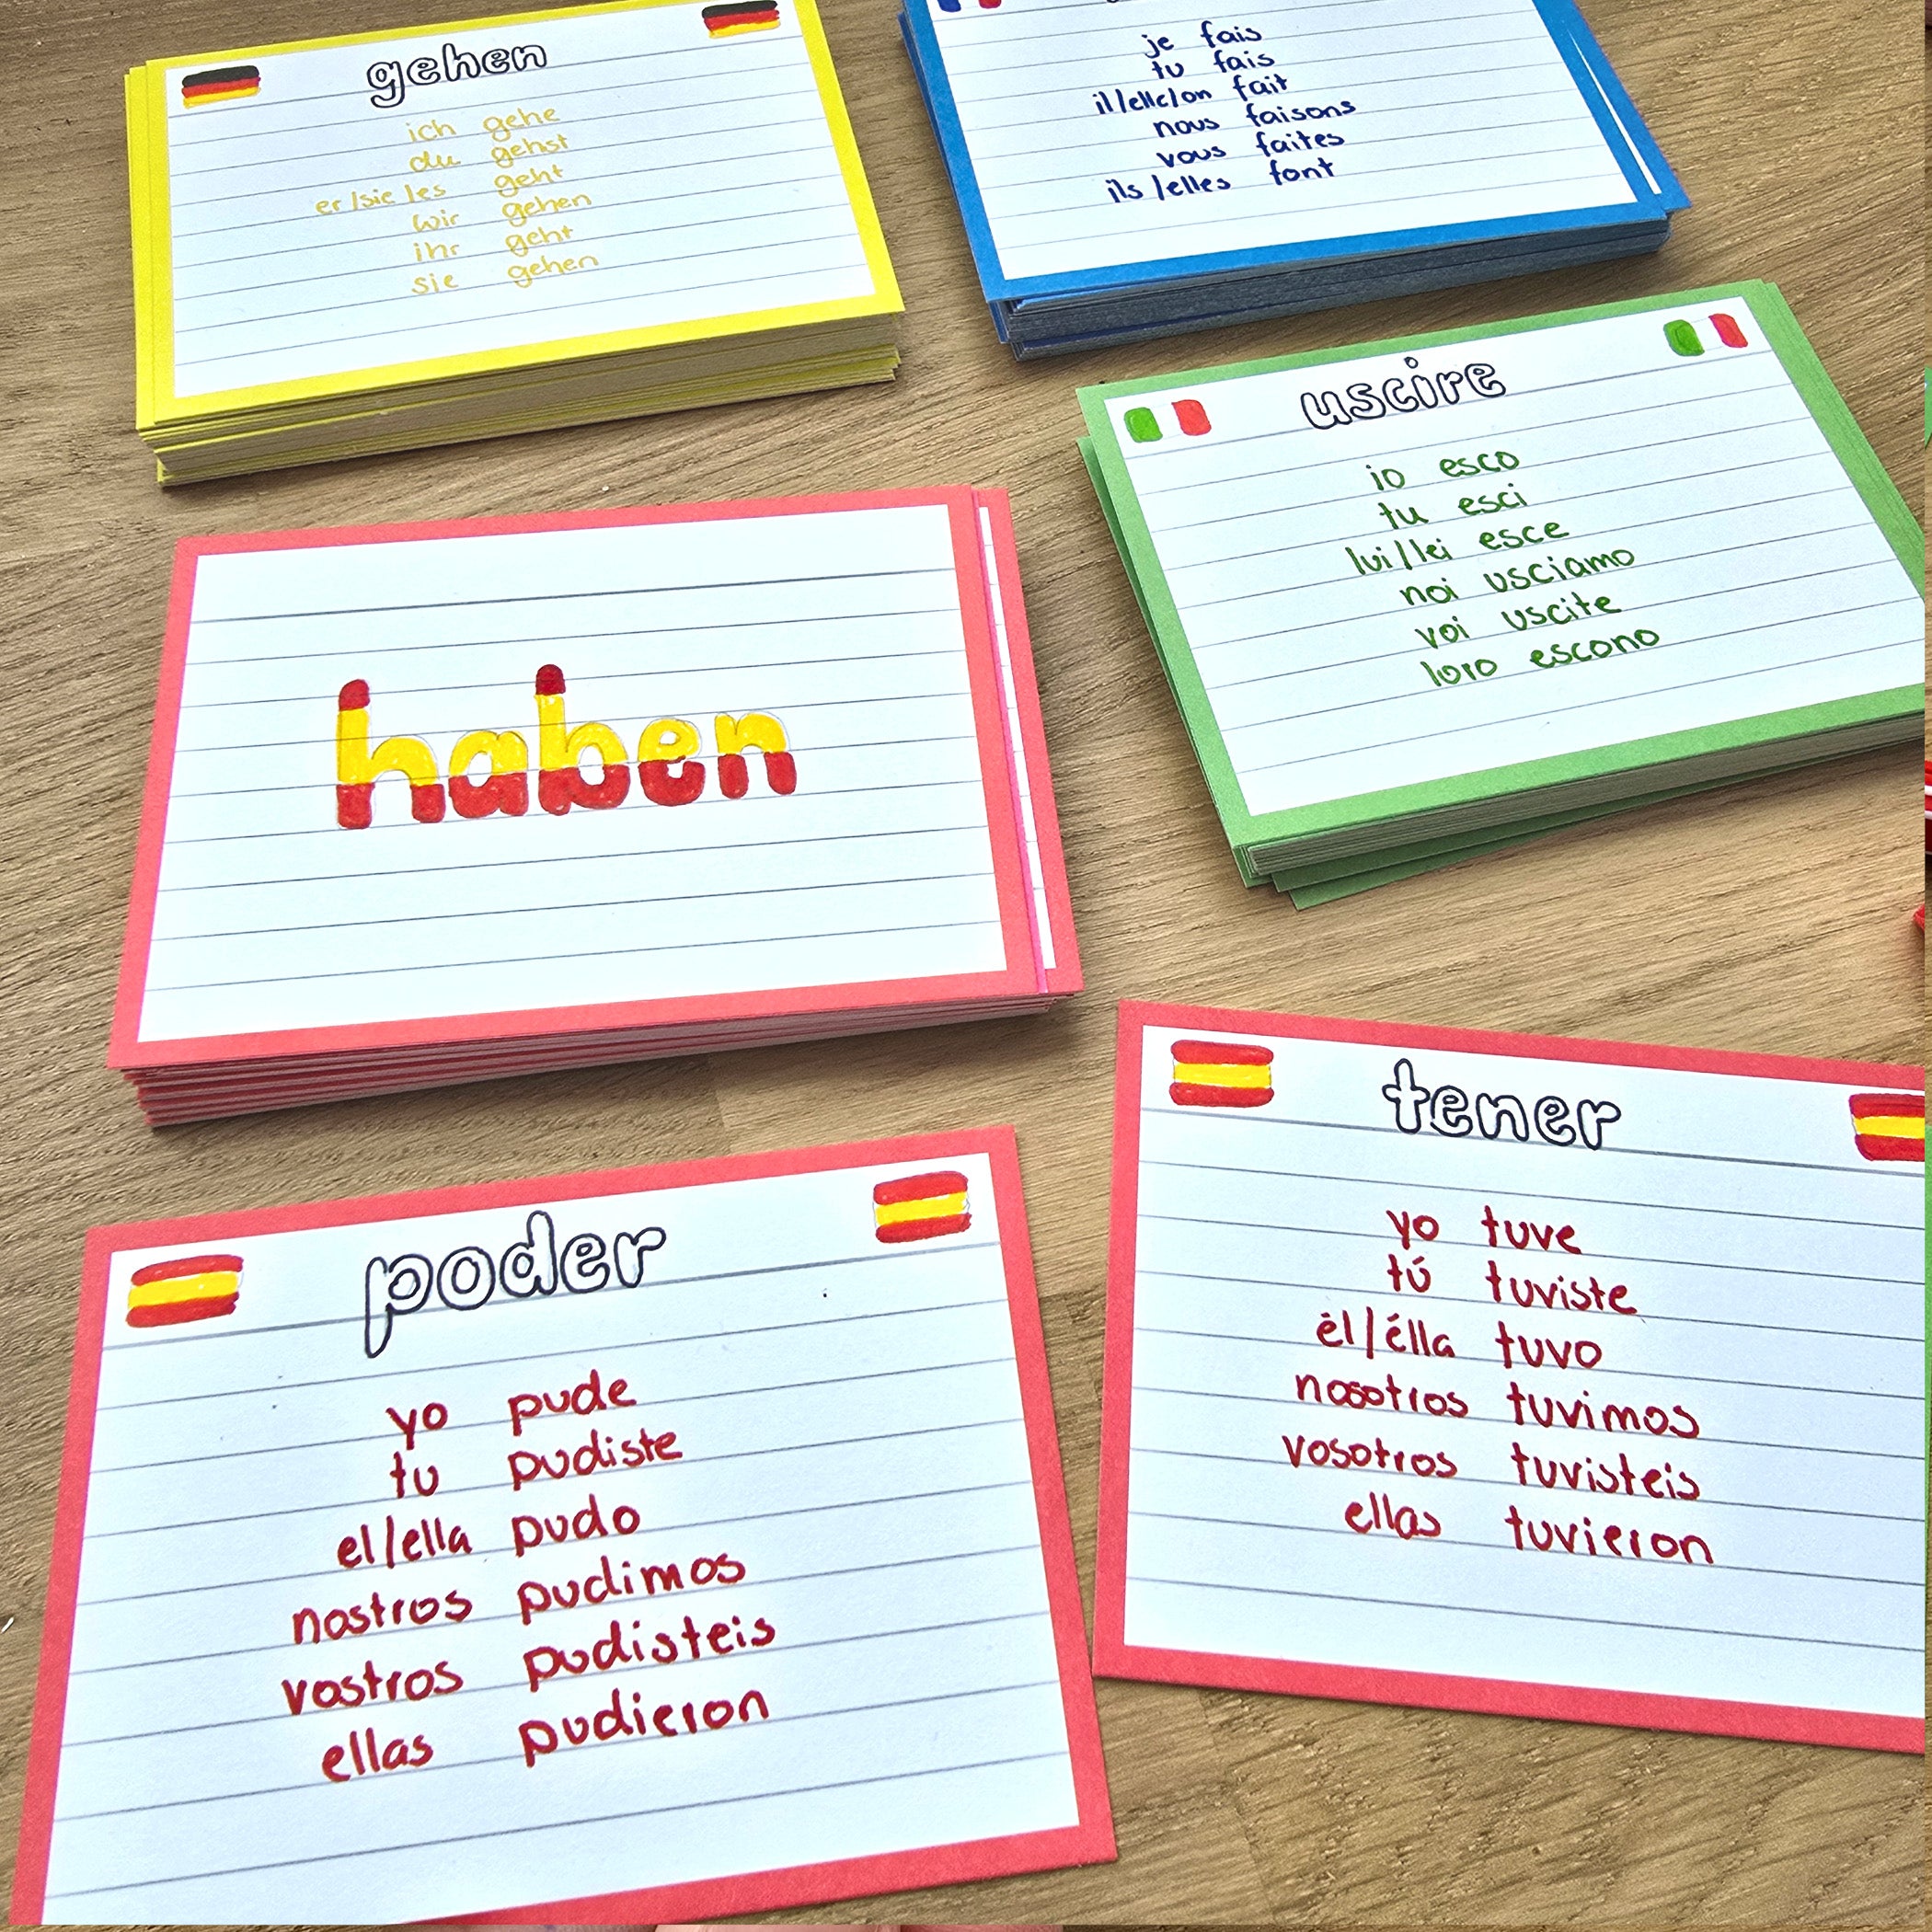 gehen
ich gehe
du gehst
er/sie/es geht
wir gehen
ihr geht
sie gehen
je fais
tu fais
il/elle/on fait
nous faisons
vous faites
ils/elles font
uscire
io esco
tu esci
lui/lei esce
noi usciamo
voi uscite
loro escono
haben
tener
yo tuve
tú tuviste
él/élla tuvo
nosotros tuvimos
vosotros tuvisteis
ellas tuvieron
poder
yo pude
tu pudiste
el/ella pudo
nostros pudimos
vostros pudisteis
ellas pudieron